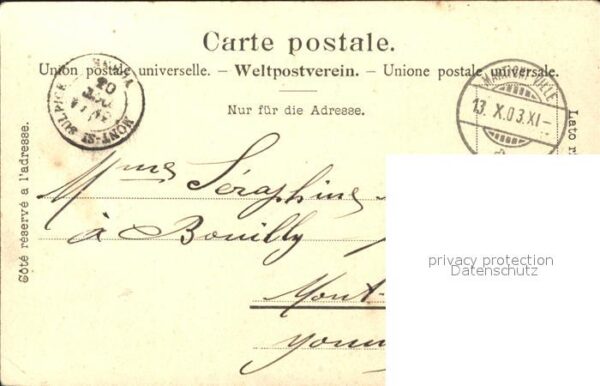 Carte postale.
Union postale universelle. – Weltpostverein. – Unione postale universale.
Nur für die Adresse.
Côté réservé a l'adresse.
Lato r
MONT-ST SULPICE
13. X. 03. XI –
Mme Séraphine
à Bouilly
Mont-
Yonn
privacy protection
Datenschutz